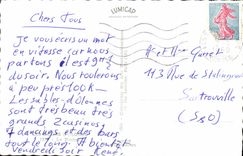 LUMICAP
Chers Tous
Je vous écris un mot
en vitesse car nous
partons il est 9h
du soir. Nous roulerons
à peu près 100 K —
Les sables d'olonnes
sont très beau très
grands 2 casinos
dancings et des bars
tout le long. A bientôt
Vendredi soir René.
et Mme
113 Rue de Stalingrad
Sartrouville
(S&O)